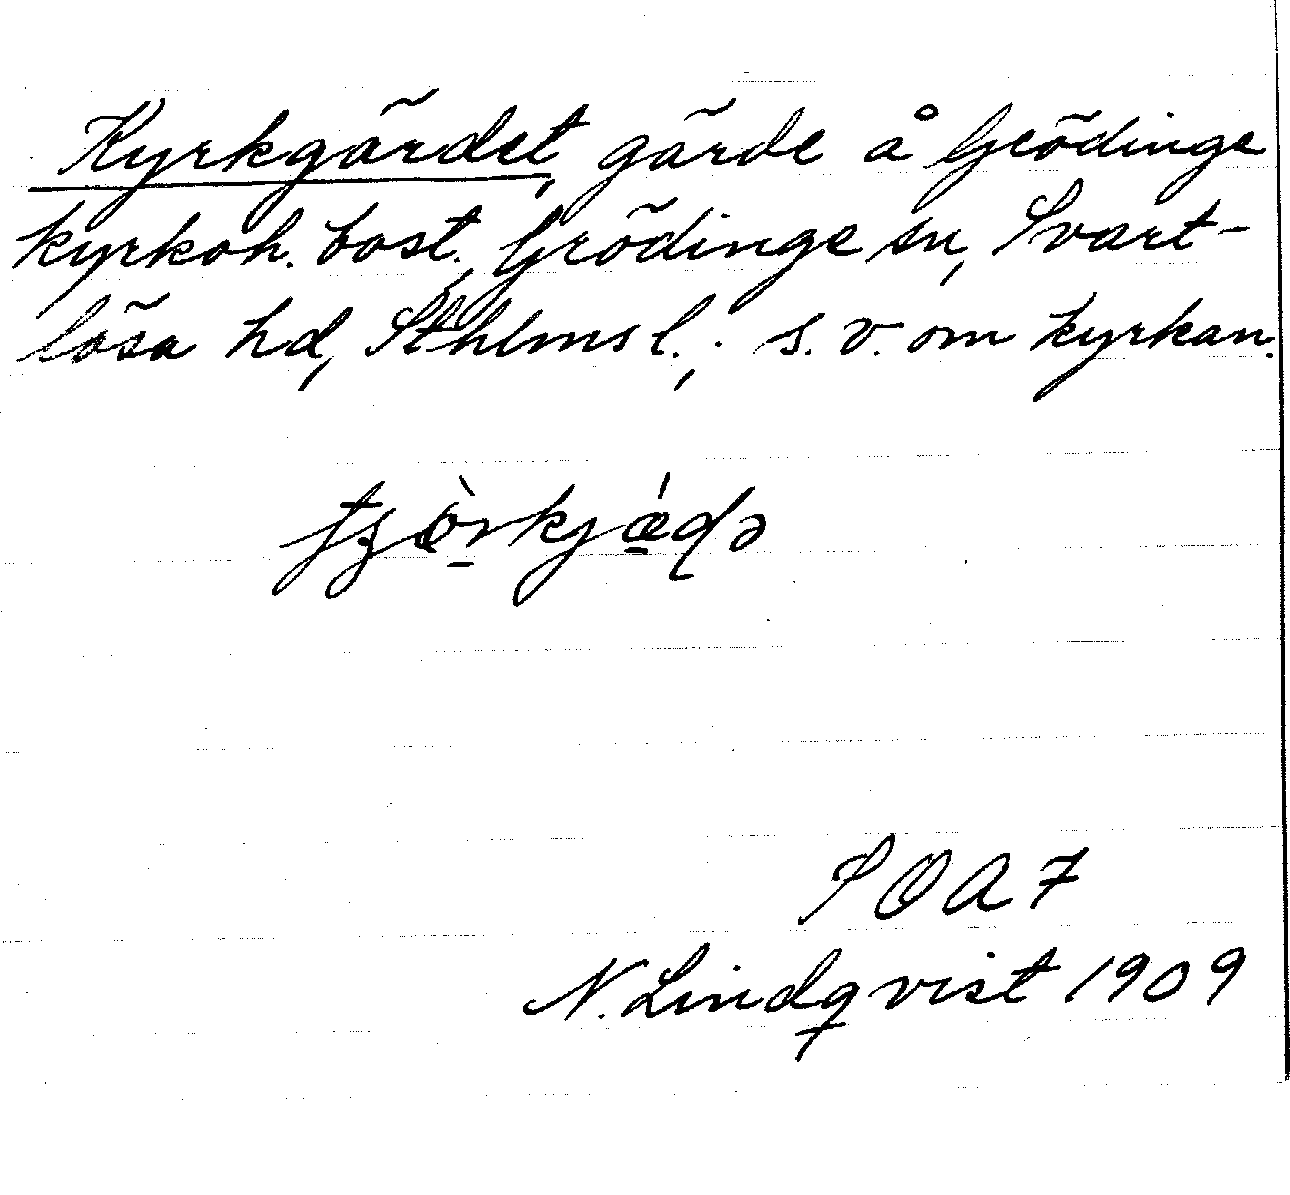 Kyrkgärdet, gärde å Grödinge
kyrkoh. bost., Grödinge sn, Svart-
lösa hd, Sthlms l.; s.v. om kyrkan.
SOA 7
N. Lindqvist 1909